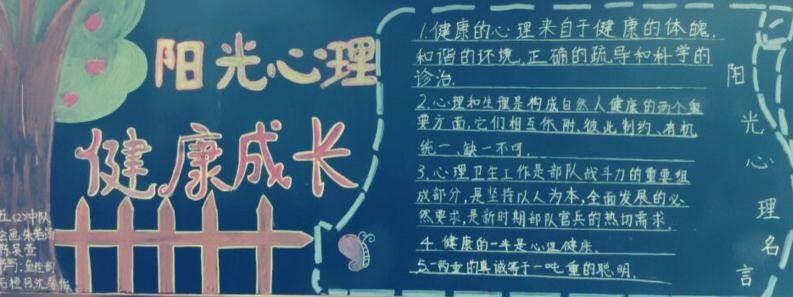 阳光心理
健康成长
1.健康的心理来自于健康的体魄,
和谐的环境,正确的疏导和科学的
诊治.
2.心理和生理是构成自然人健康的两个重
要方面,它们相互依附,彼此制约、有机
统一、缺一不可.
3.心理卫生工作是部队战斗力的重要组
成部分,是坚持以人为本,全面发展的必
然要求,是新时期部队官兵的热切需求.
4.健康的一半是心理健康.
5.一两重的真诚等于一吨重的聪明.
阳光心理名言
五(2)中队